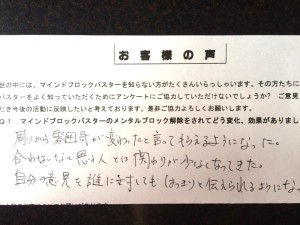 お客様の声
世の中には、マインドブロックバスターを知らない方がたくさんいらっしゃいます。その方たちに
バスターをよく知っていただくためにアンケートにご協力していただけないでしょうか？ ご意見
だき今後の活動に反映したいと考えております。是非ご協力よろしくお願いします。
Q1 マインドブロックバスターのメンタルブロック解除をされてどう変化、効果がありまし
周りから雰囲気が変わったと言ってもらえるようになった。
合わないなと思う人とは関わりが少なくなってきた。
自分の意見を誰に対しても はっきりと伝えられるようになっ